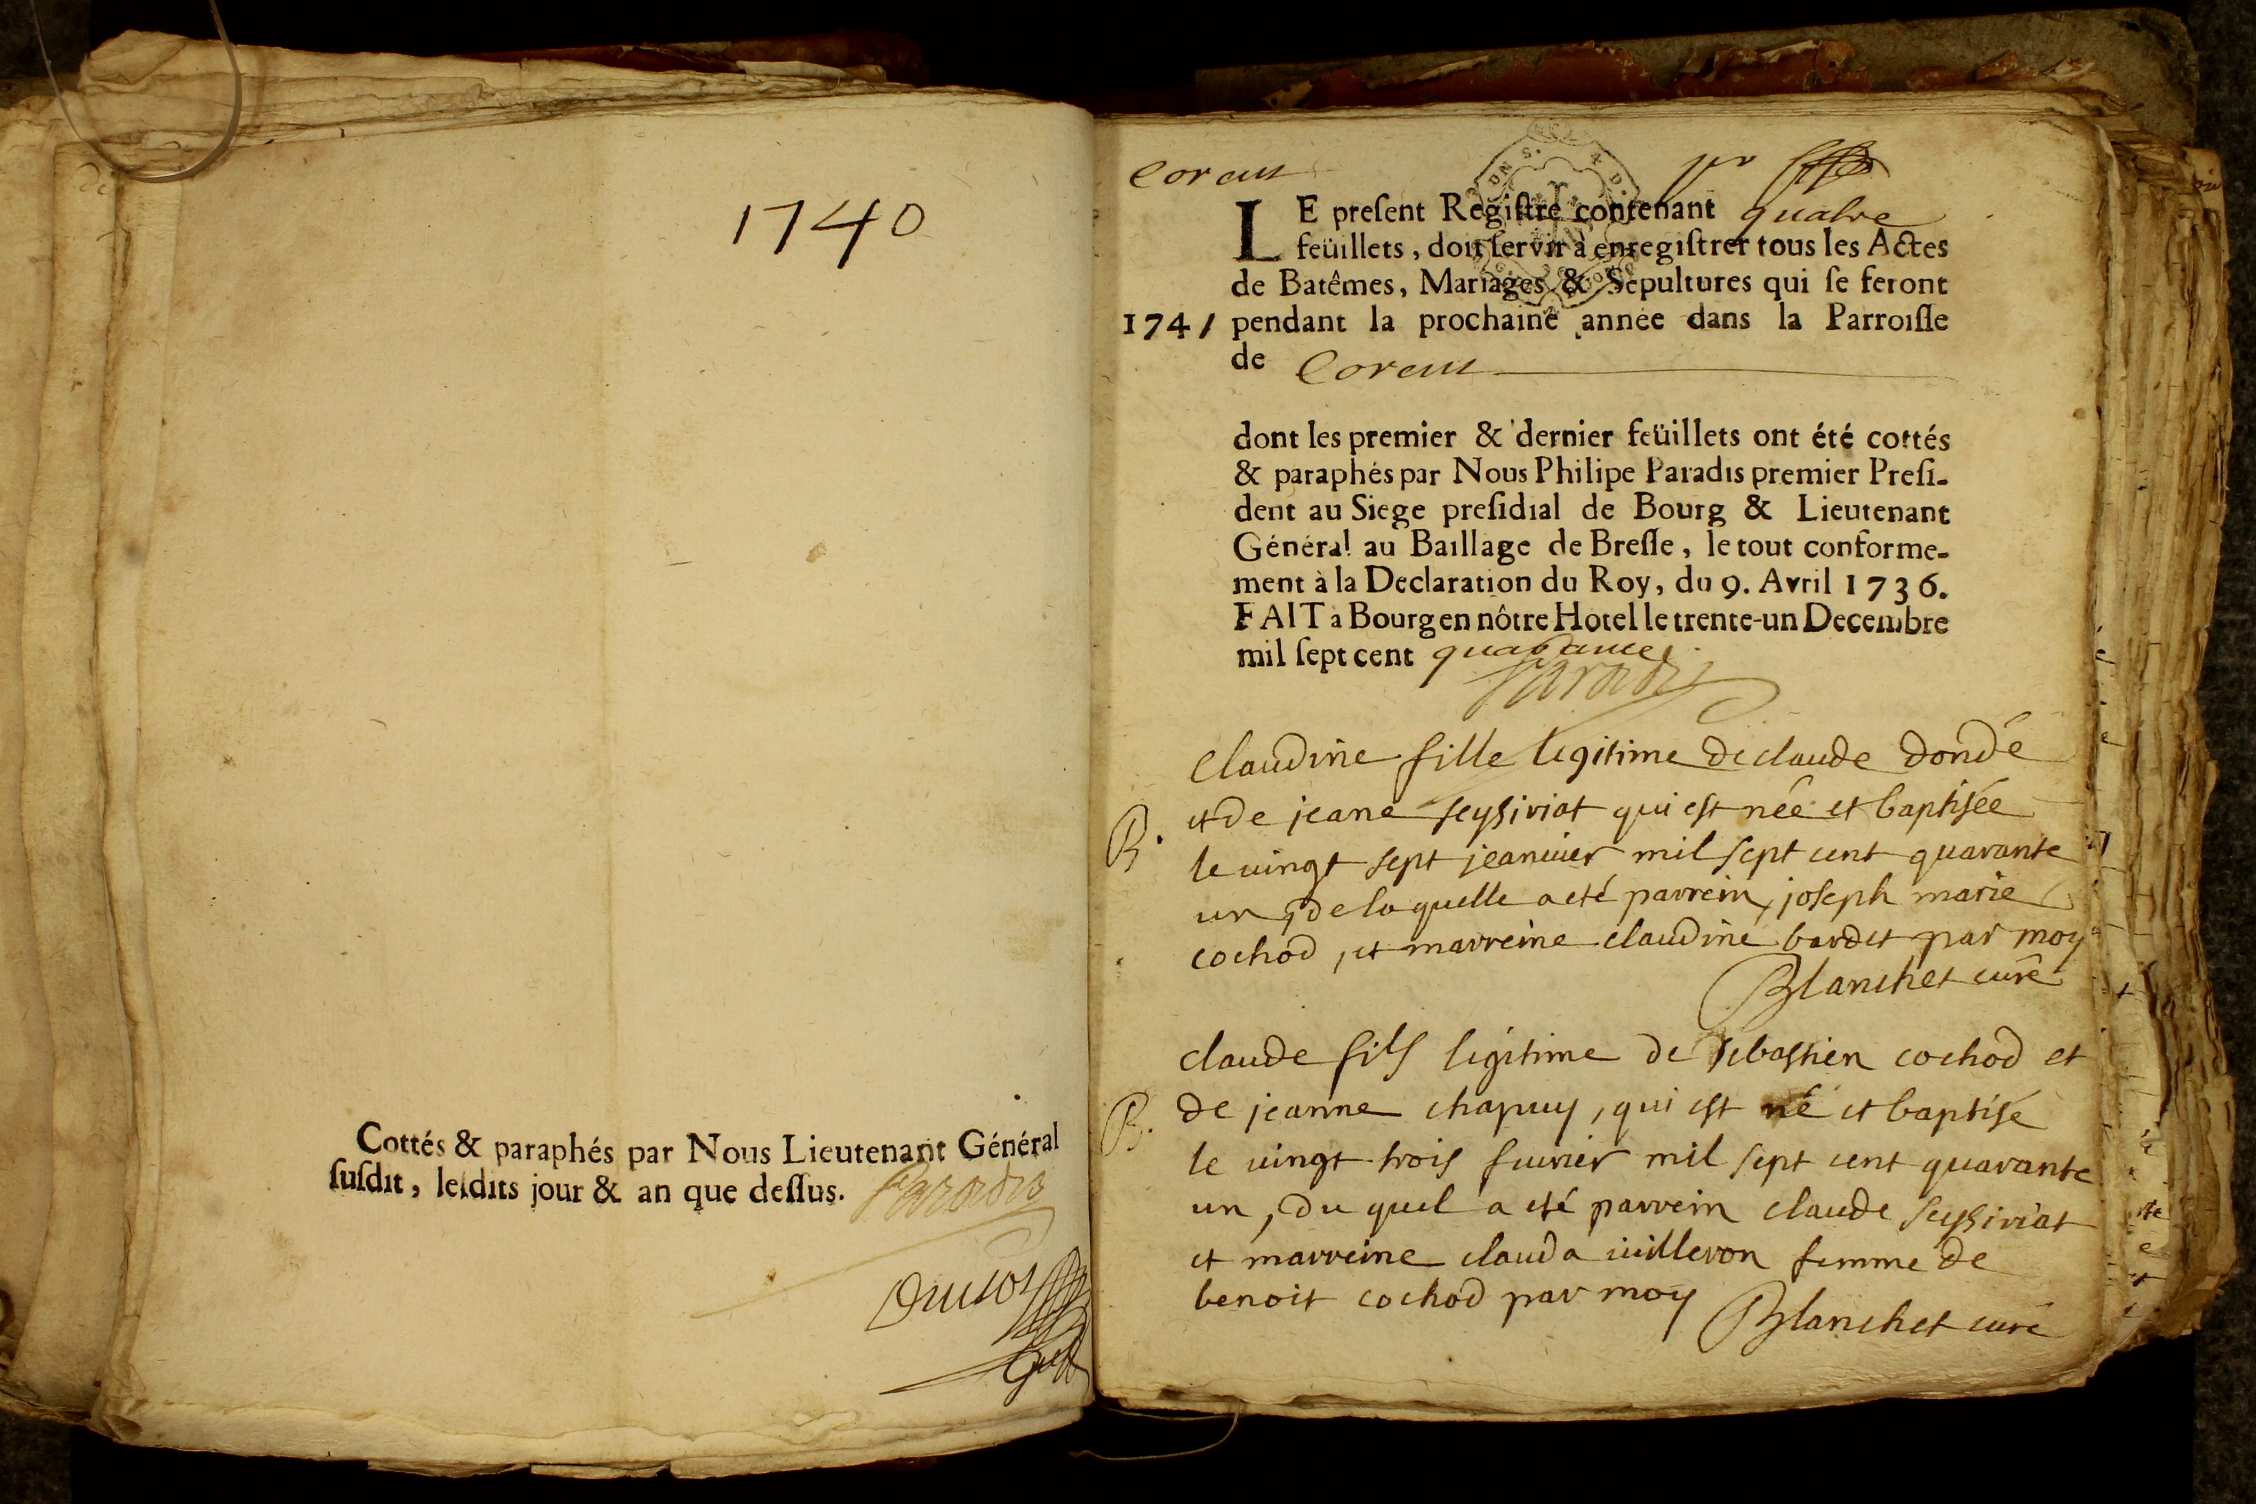 1740
Cottés & paraphés par Nous Lieutenant Général
suſdit, leſdits jour & an que deſſus. Paradis
Corent
LE preſent Regiſtre contenant quatre
feüillets, doit ſervir à enregiſtrer tous les Actes
de Batêmes, Mariages & Sepultures qui ſe feront
1741 pendant la prochaine année dans la Parroiſſe
de Corent
dont les premier & dernier feüillets ont été cottés
& paraphés par Nous Philipe Paradis premier Preſi-
dent au Siege preſidial de Bourg & Lieutenant
Général au Baillage de Breſſe, le tout conforme-
ment à la Declaration du Roy, du 9. Avril 1736.
FAIT à Bourg en nôtre Hotel le trente-un Decembre
mil ſept cent quarante.
Paradis
Claudine fille legitime de claude dondé
et de jeane seysiriat qui est née et baptisée
B. le vingt sept jeanvier mil sept cent quarante
un, de la quelle a eté parrein, joseph marie
cochod, et marreine claudine bardet par moy
Blanchet curé
claude fils legitime de sebastien cochod et
B. de jeanne chapuy, qui est né et baptisé
le vingt trois fevrier mil sept cent quarante
un, du quel a eté parrein claude seysiriat
et marreine clauda villeron femme de
benoit cochod par moy
Blanchet curé